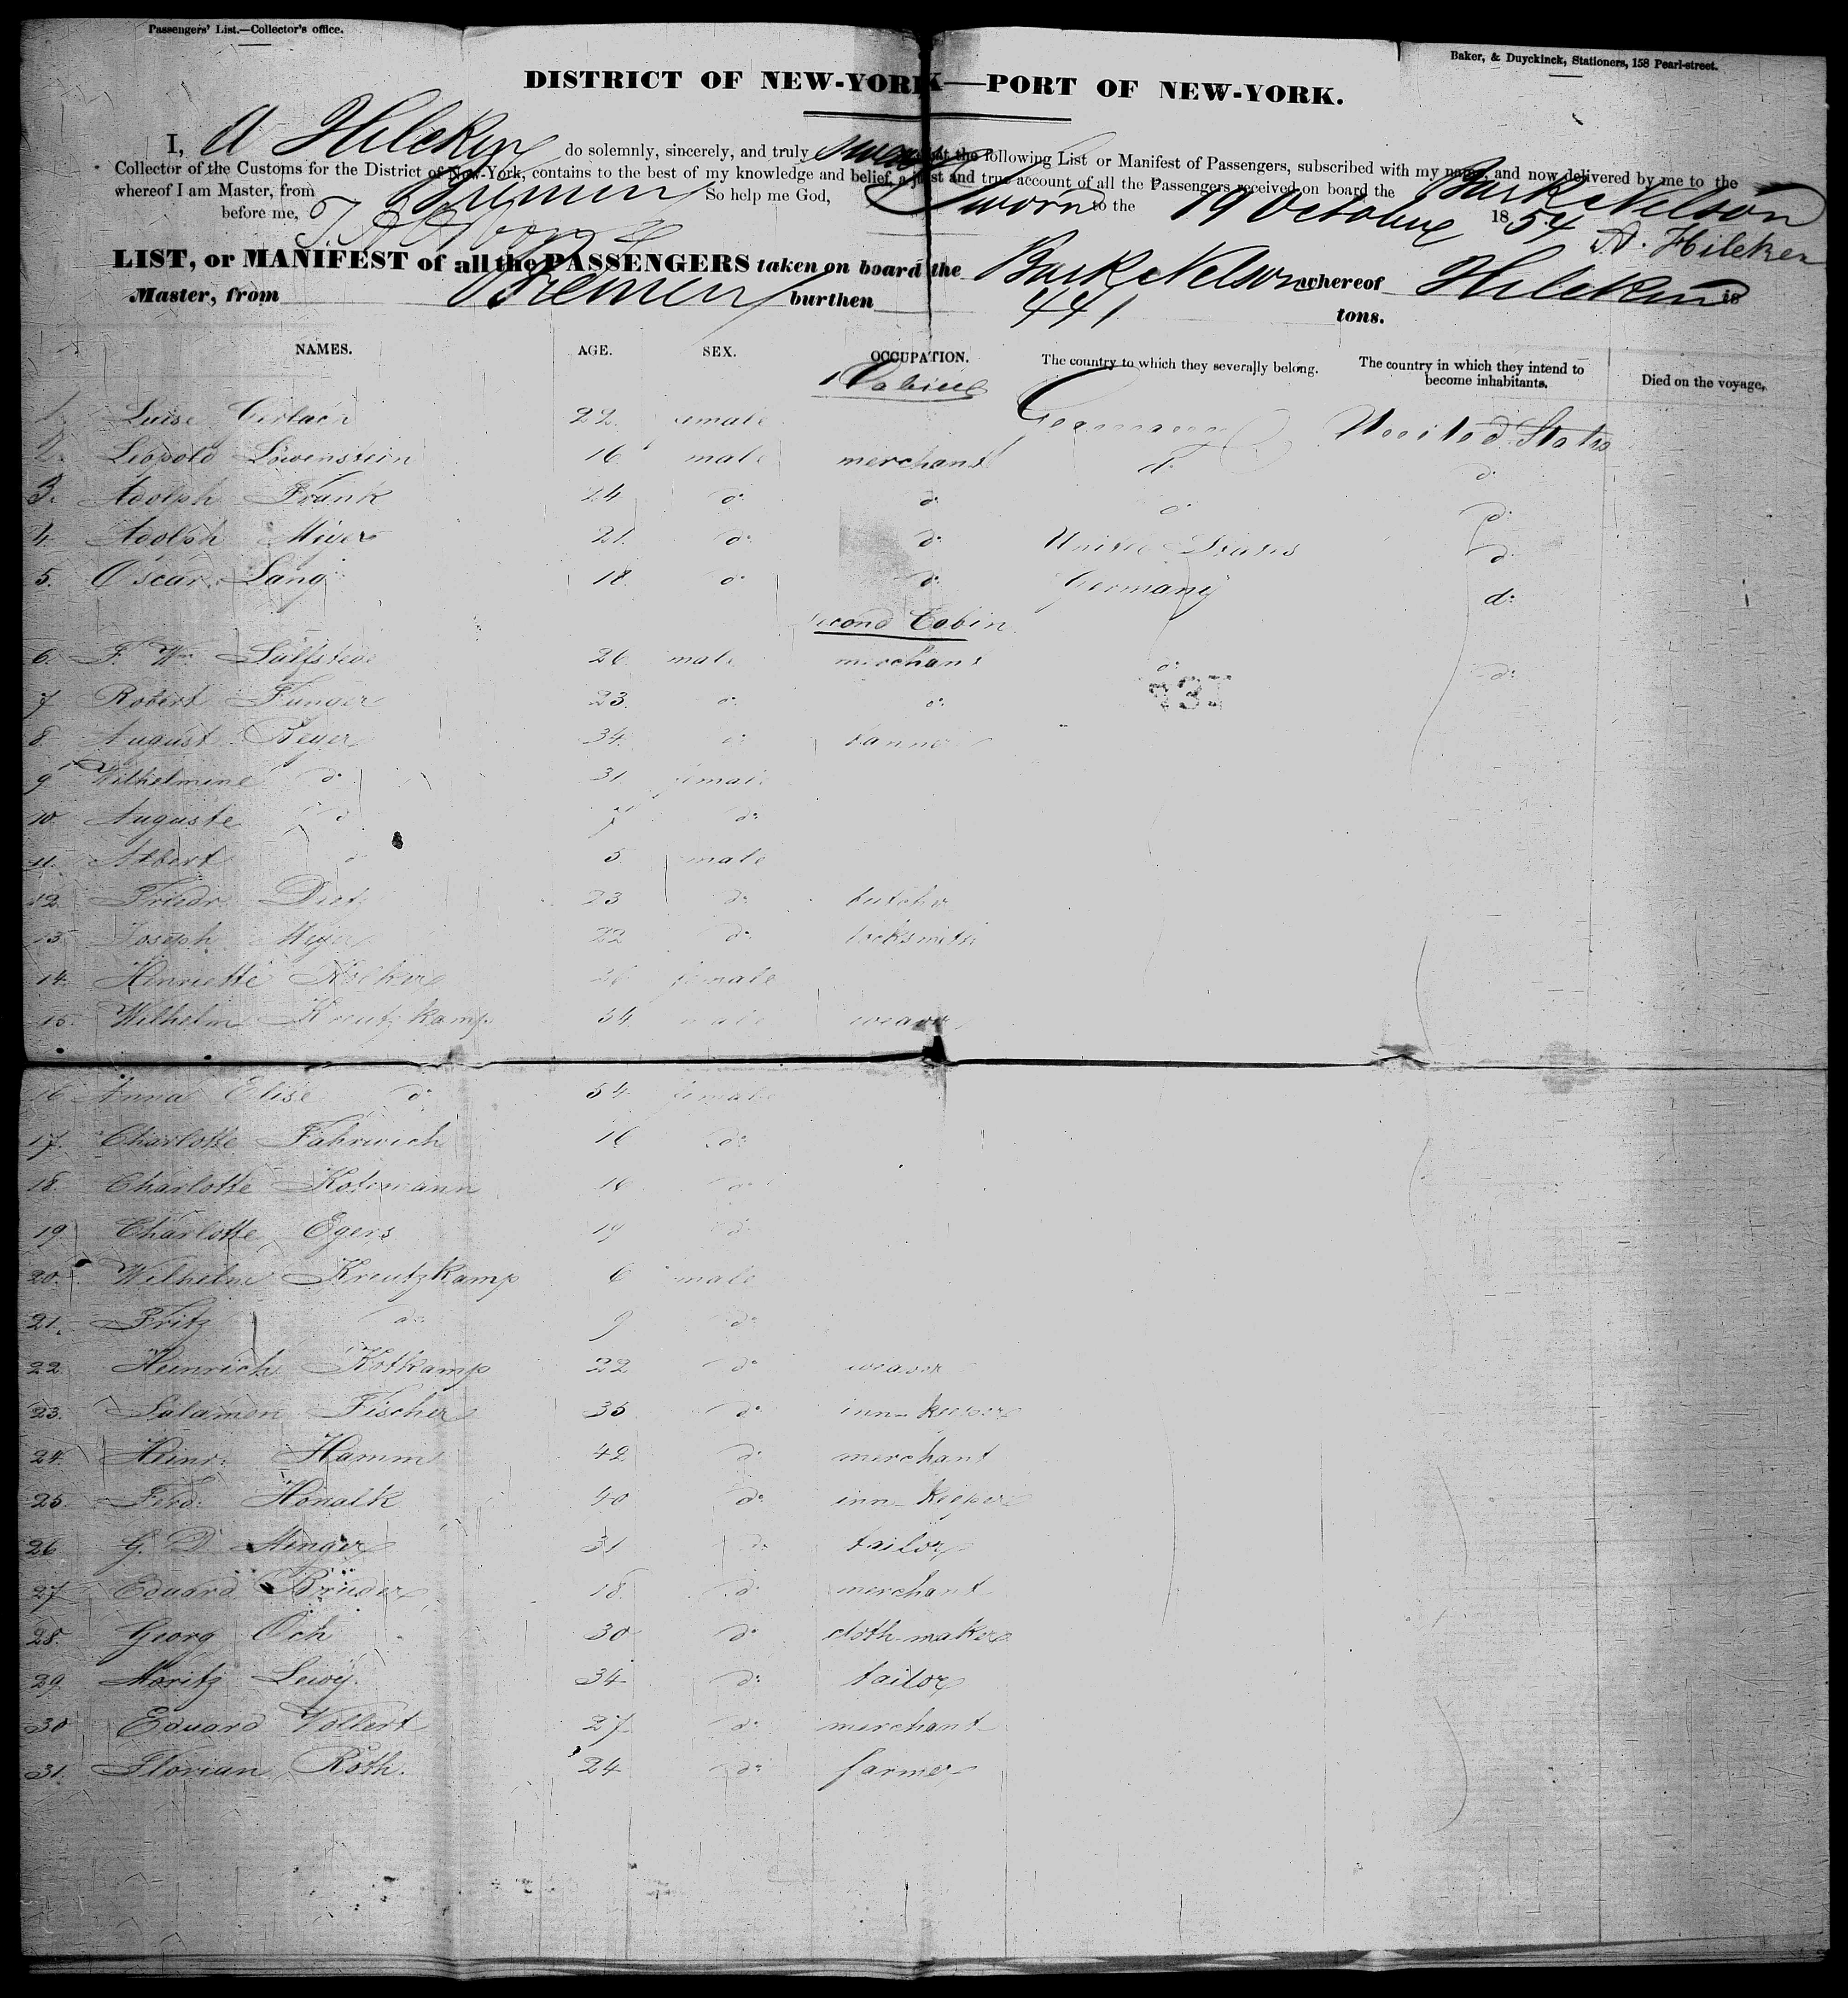 Passengers' List.—Collector's office.
Baker, & Duyckinck, Stationers, 158 Pearl-street.
DISTRICT OF NEW-YORK—PORT OF NEW-YORK.
I, A Hilcken do solemnly, sincerely, and truly swear that the following List or Manifest of Passengers, subscribed with my name, and now delivered by me to the
Collector of the Customs for the District of New-York, contains to the best of my knowledge and belief, a just and true account of all the Passengers received on board the Bark Nelson
whereof I am Master, from Bremen So help me God,
Sworn to the 19 October 1854
before me, A. Hilcken
LIST, or MANIFEST of all the PASSENGERS taken on board the Bark Nelson whereof Hilcken is
Master, from Bremen burthen 441 tons.
NAMES. AGE. SEX. OCCUPATION. The country to which they severally belong. The country in which they intend to become inhabitants. Died on the voyage,
1 Cabine
1. Luise Gerlach 22. female Germany United States
2. Leopold Löwenstein 16 male merchant d: d:
3. Adolph Frank 24 d: d: d: d:
4. Adolph Meyer 21. d: d: United States d:
5. Oscar Lang 18. d: d: Germany d:
Second Cabin
6. F. Wm. 26 male merchant d: d:
7 Robert 23. d: d:
8. August Beyer 34. d: tanner
9 Wilhelmine d: 31 female
10 Auguste d: 7 d:
11. Albert d: 5 male
12. Friedr. 23 d: butcher
13. Joseph Meyer 22 d: locksmith
14. Henriette female
15. Wilhelm Kreutzkamp 54. male weaver
16 Anna Elise d: 54. female
17. Charlotte Fahrwich 16 d:
18. Charlotte d:
19. Charlotte Egers 19 d:
20. Wilhelm Kreutzkamp 6 male
21. Fritz d: 9 d:
22. Heinrich Kotkamp 22 d: weaver
23. Salamon Fischer 35 d: inn-keeper
24. Heinr. Hamm 42 d: merchant
25. Ferd. Honalk 40 d: inn-keeper
26 G. D. Menger 31 d: tailor
27 Eduard Brüder 18. d: merchant
28. Georg Och 30 d: cloth-maker
29. Moritz Lewy. 34 d: tailor
30 Eduard Vollert 27 d: merchant
31. Florian Roth. 24 d: farmer